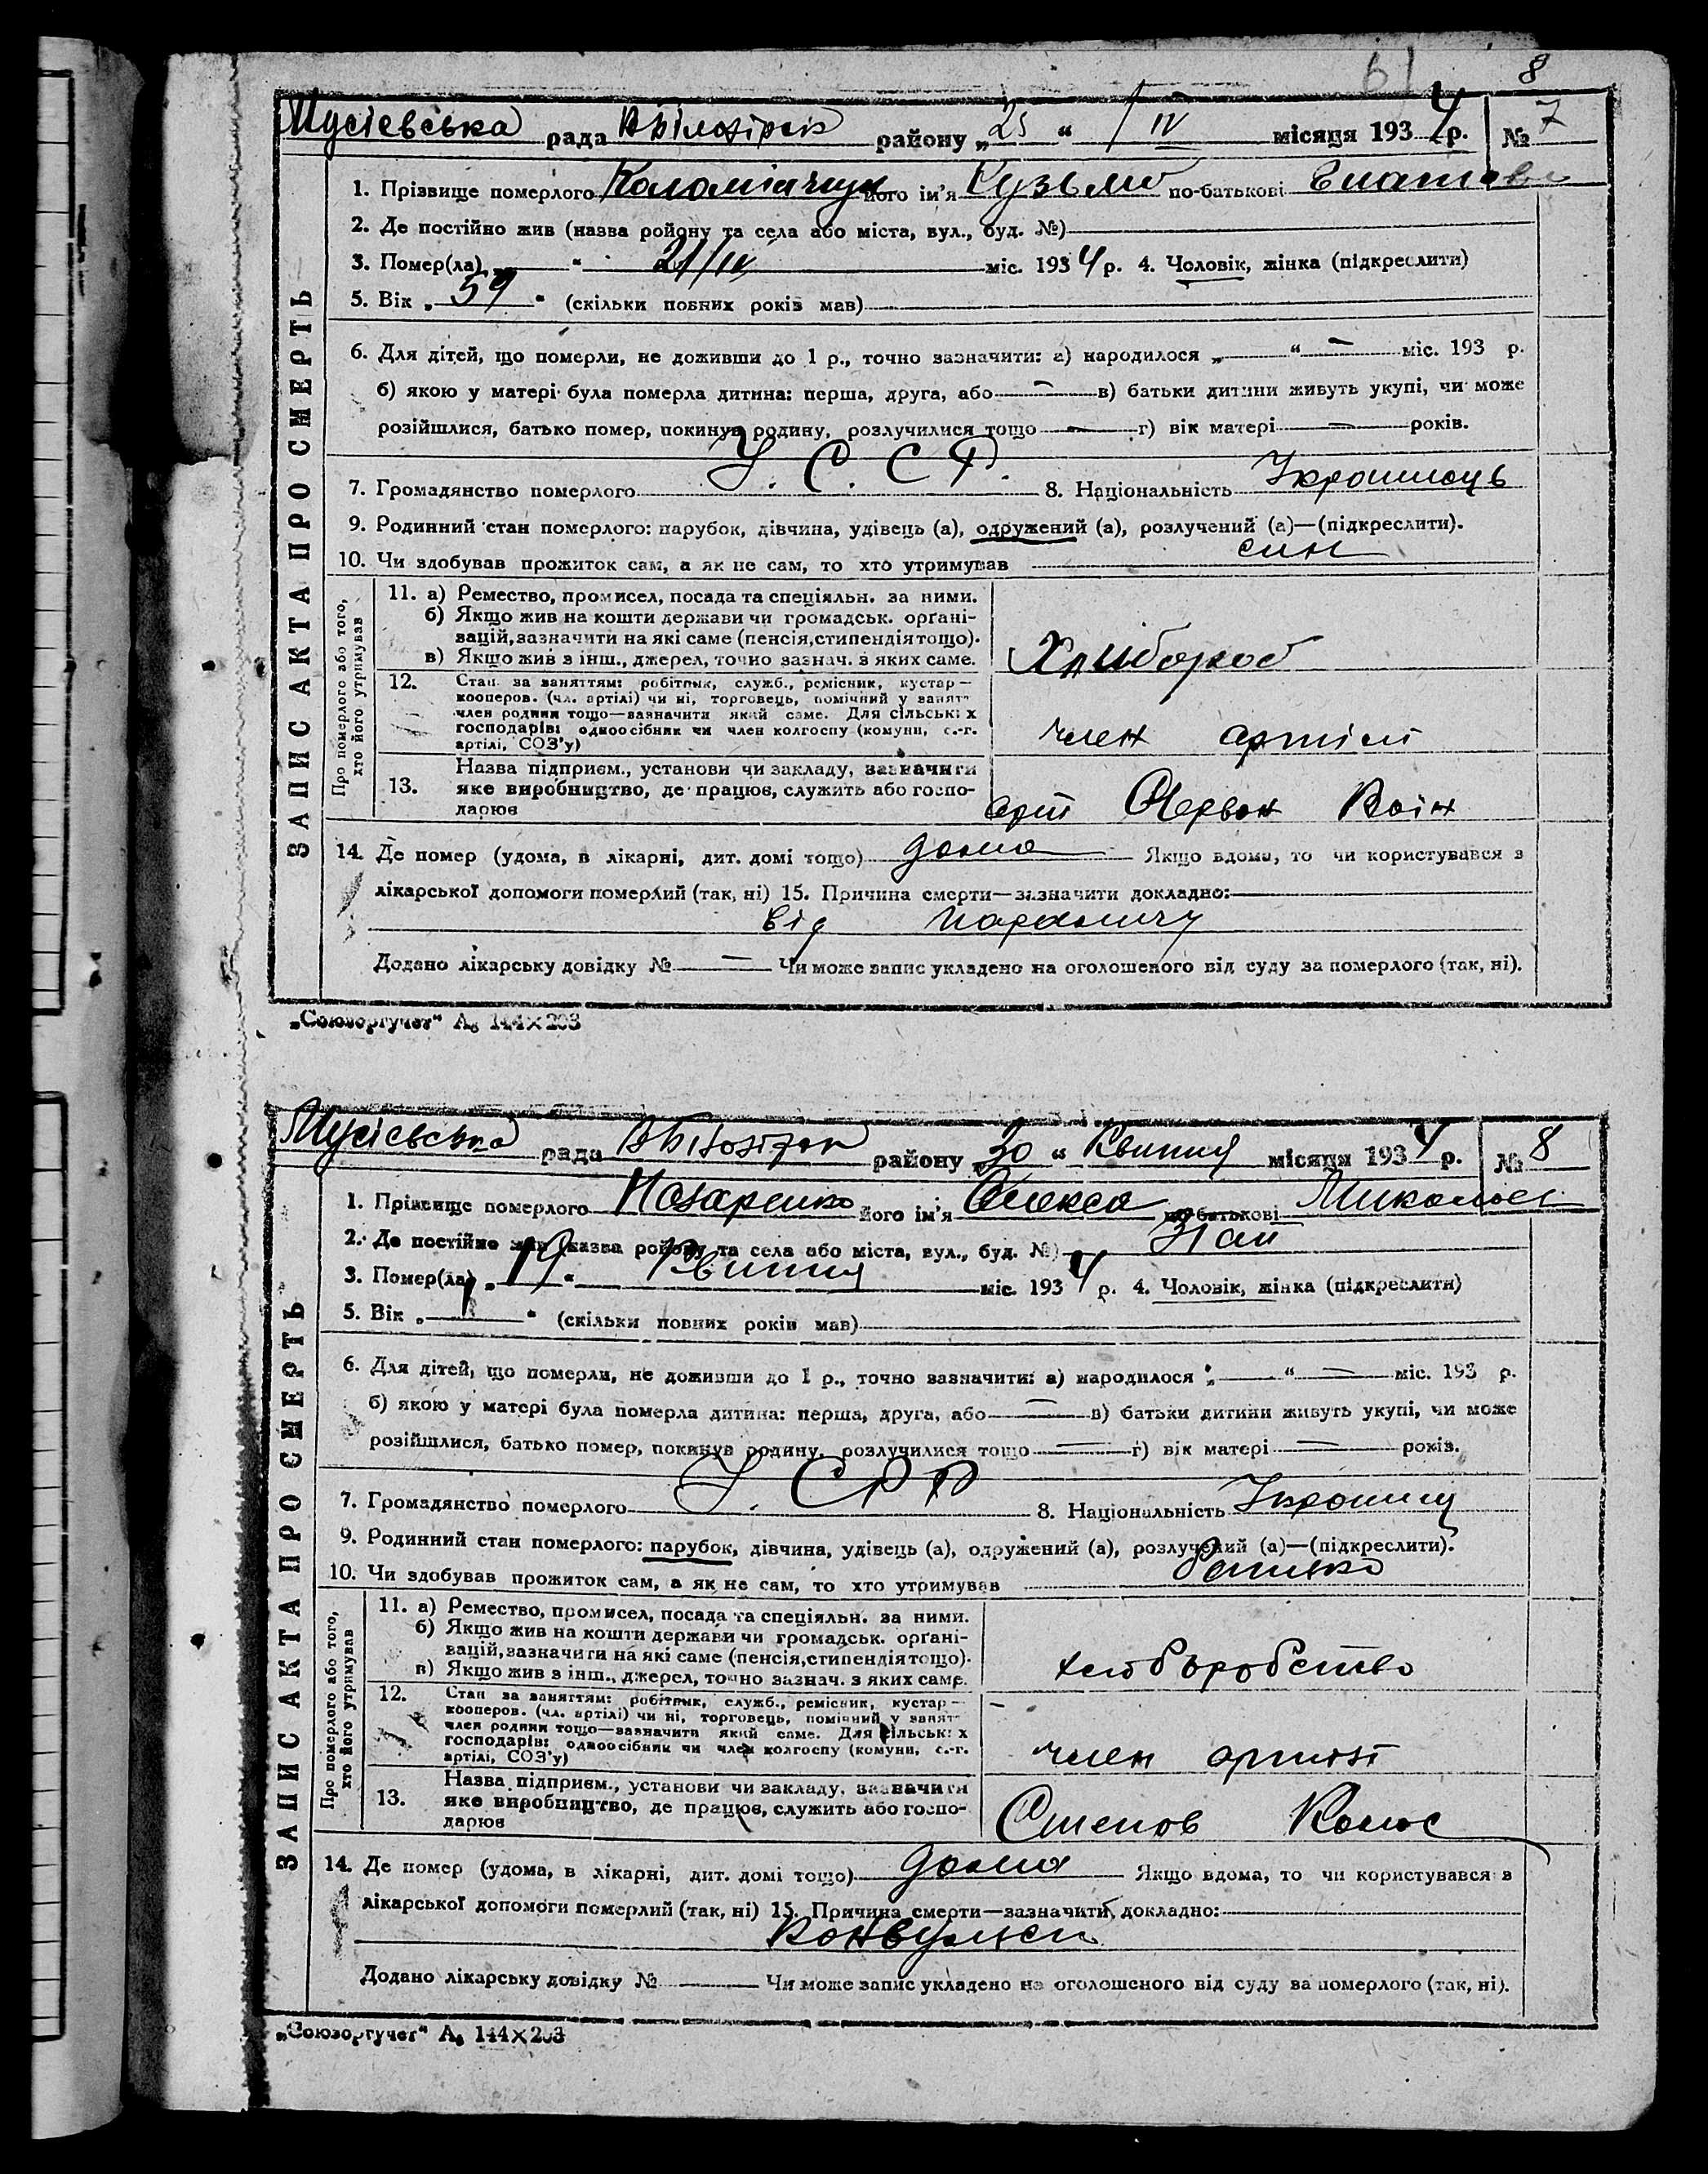 61 8
Мусіївська рада В Білозірськ району „25“ / IV місяця 1934 р. № 7
1. Прізвище померлого Коломійчук його ім'я Кузьма по-батькові
2. Де постійно жив (назва ройону та села або міста, вул., буд. №)
3. Помер(ла) „ “ 21/IV міс. 1934 р. 4. Чоловік, жінка (підкреслити)
5. Вік „ 59 “ (скільки повних років мав)
6. Для дітей, що померли, не доживши до 1 р., точно зазначити: а) народилося „ “ — міс. 193 р.
б) якою у матері була померла дитина: перша, друга, або — в) батьки дитини живуть укупі, чи може
розійшлися, батько помер, покинув родину, розлучилися тощо — г) вік матері — років.
7. Громадянство померлого У. С. С Р. 8. Національність Українець
9. Родинний стан померлого: парубок, дівчина, удівець (а), одружений (а), розлучений (а)—(підкреслити).
10. Чи здобував прожиток сам, а як не сам, то хто утримував син
ЗАПИС АКТА ПРО СМЕРТЬ
Про померлого або того,
хто його утримував
11. а) Ремество, промисел, посада та спеціяльн. за ними.
б) Якщо жив на кошти держави чи громадськ. орґані-
зацій, зазначити на які саме (пенсія, стипендія тощо).
в) Якщо жив з інш., джерел, точно зазнач. з яких саме.
Хлибороб
12. Стан за заняттям: робітник, служб., ремісник, кустар—
кооперов. (чл. артілі) чи ні, торговець, помічний у занят-
член родини тощо—зазначити який саме. Для сільськ х
господарів: одноосібник чи член колгоспу (комуни, с.-г.
артілі, СОЗ'у)
член артілі
13. Назва підприєм., установи чи закладу, зазначити
яке виробництво, де працює, служить або госпо-
дарює
арт Червон Воїн
14. Де помер (удома, в лікарні, дит. домі тощо) дома Якщо вдома, то чи користувався з
лікарської допомоги померлий (так, ні) 15. Причина смерти—зазначити докладно:
від паралічу
Додано лікарську довідку № — Чи може запис укладено на оголошеного від суду за померлого (так, ні).
„Союзоргучет“ А₆ 144×203
Мусіївська рада В Білозірськ району „30“ Квитня місяця 1934 р. № 8
1. Прізвище померлого Назаренко його ім'я Олекса по-батькові
2. Де постійно жив (назва ройону та села або міста, вул., буд. №)
3. Помер(ла) „19“ Квитня міс. 1934 р. 4. Чоловік, жінка (підкреслити)
5. Вік „ “ (скільки повних років мав)
6. Для дітей, що померли, не доживши до 1 р., точно зазначити: а) народилося „ “ — міс. 193 р.
б) якою у матері була померла дитина: перша, друга, або — в) батьки дитини живуть укупі, чи може
розійшлися, батько помер, покинув родину, розлучилися тощо — г) вік матері — років.
7. Громадянство померлого У. С Р Р 8. Національність Українец
9. Родинний стан померлого: парубок, дівчина, удівець (а), одружений (а), розлучений (а)—(підкреслити).
10. Чи здобував прожиток сам, а як не сам, то хто утримував
ЗАПИС АКТА ПРО СМЕРТЬ
Про померлого або того,
хто його утримував
11. а) Ремество, промисел, посада та спеціяльн. за ними.
б) Якщо жив на кошти держави чи громадськ. орґані-
зацій, зазначити на які саме (пенсія, стипендія тощо).
в) Якщо жив з інш., джерел, точно зазнач. з яких саме.
12. Стан за заняттям: робітник, служб., ремісник, кустар—
кооперов. (чл. артілі) чи ні, торговець, помічний у занят-
член родини тощо—зазначити який саме. Для сільськ х
господарів: одноосібник чи член колгоспу (комуни, с.-г.
артілі, СОЗ'у)
член артілі
13. Назва підприєм., установи чи закладу, зазначити
яке виробництво, де працює, служить або госпо-
дарює
Степов Колос
14. Де помер (удома, в лікарні, дит. домі тощо) дома Якщо вдома, то чи користувався з
лікарської допомоги померлий (так, ні) 15. Причина смерти—зазначити докладно:
Додано лікарську довідку № Чи може запис укладено на оголошеного від суду за померлого (так, ні).
„Союзоргучет“ А₆ 144×203